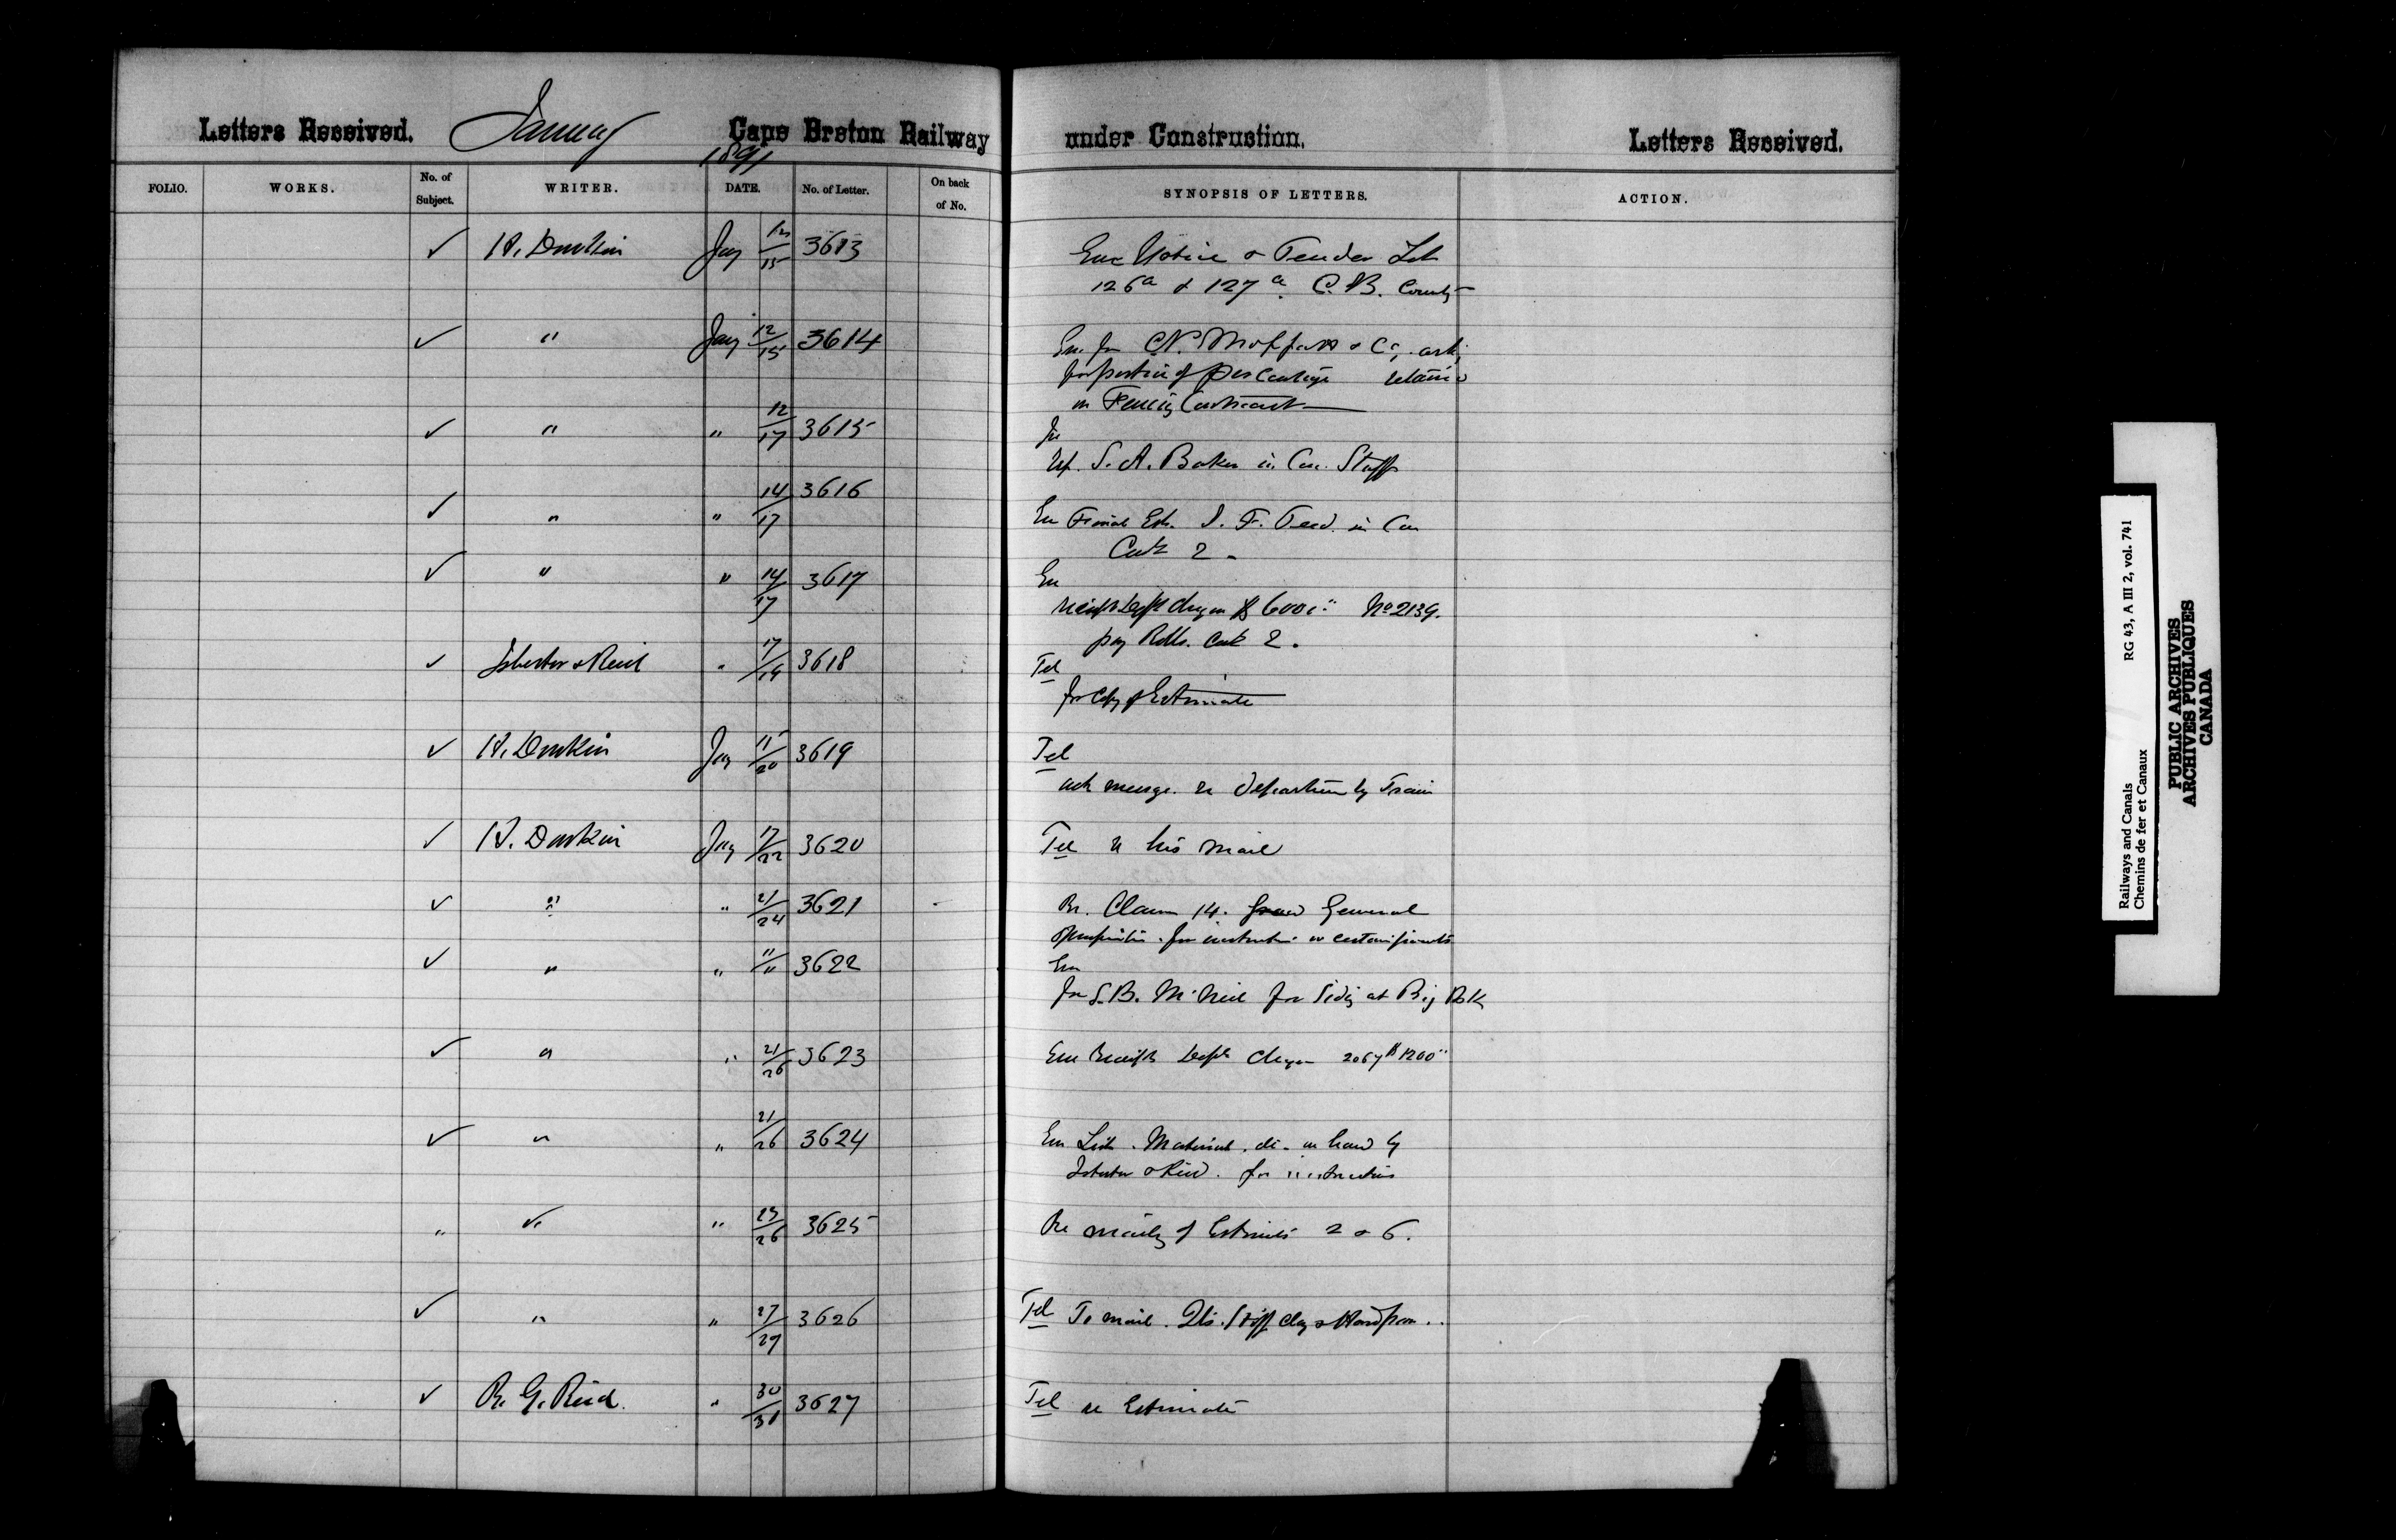 Letters Received. January Cape Breton Railway under Construction. Letters Received.
1891
FOLIO. WORKS. No. of Subject. WRITER. DATE. No. of Letter. On back of No. SYNOPSIS OF LETTERS. ACTION.
✓ H. Donkin Jany 12/15 3613 Enc Notice & Tender Lots
126a & 127a. C.B. County
✓ " Jany 12/15 3614 Enc fm & Co. ask
proportion of percentage retained
on Fencing Contract
✓ " " 12/17 3615 Re
S. A. Baker in Con. Staff
✓ " " 14/17 3616 Enc Final Est.
2
✓ " " 14/17 3617 Enc
Receipt Dept cheque $6000 No 2139.
pay Rolls. 2.
✓ Isbester & Reid " 17/19 3618 Tel
for Copy of Estimate
✓ H. Donkin Jany 15/20 3619 Tel
ack message re departure by Train
✓ H. Donkin Jany 17/22 3620 Tel re his mail
✓ " " 21/24 3621 Re. Clause 14. General
Specification. for instructions on certain points
✓ " " "/" 3622 Enc
for S.B. McNeil for Siding at Big
✓ " " 21/26 3623 Enc Receipt Dept Cheque 2067 $1200
✓ " " 21/26 3624 Enc List. Material. on hand by
Isbester & Reid. for instructions
" " " 23/26 3625 Re mailing of Estimates 2 & 6.
✓ " " 27/27 3626 Tel To mail. Stiff Clay & Hardpan..
✓ R. G. Reid. " 30/31 3627 Tel re Estimate
Railways and Canals RG 43, A III 2, vol. 741
Chemins de fer et Canaux
PUBLIC ARCHIVES
ARCHIVES PUBLIQUES
CANADA